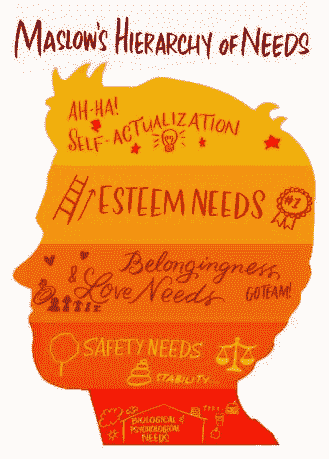 MASLOW'S HIERARCHY OF NEEDS
AH-HA!
SELF-ACTUALIZATION
ESTEEM NEEDS
#1
Belongingness
& Love Needs
GO TEAM!
SAFETY NEEDS
STABILITY
BIOLOGICAL &
PSYCHOLOGICAL
NEEDS